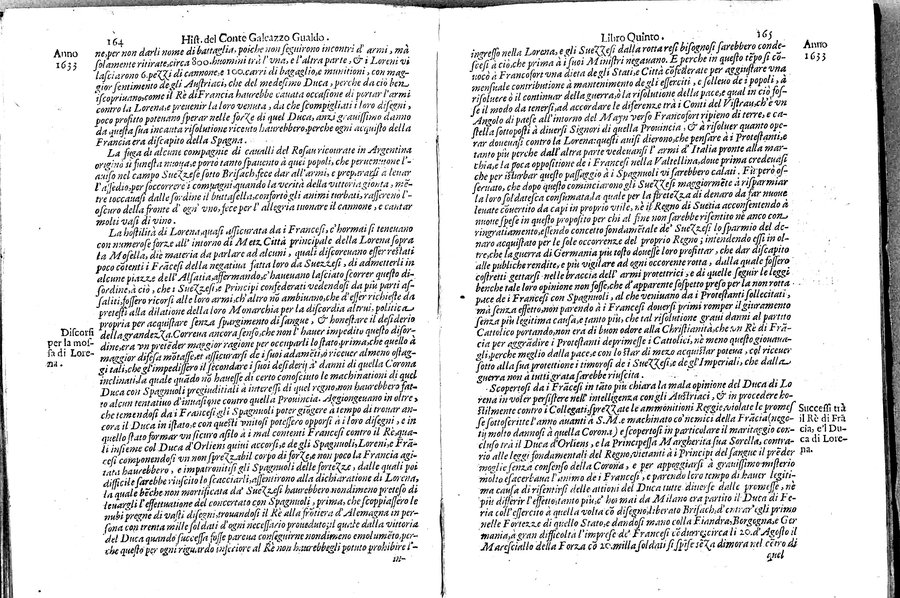 164 Hist. del Conte Galeazzo Gualdo.
Anno
1633
ne, per non darli nome di battaglia, poiche non seguirono incontri d'armi, mà
solamente ritirate, circa 800. huomini trà l'vna, e l'altra parte, & i Loreni vi
lasciarono 6. pezzi di cannone, e 100. carri di bagaglio, e munitioni, con mag-
gior sentimento degli Austriaci, che del medesimo Duca, perche da ciò ben
iscopriuano, come il Rè di Francia haurebbe cauata occasione di portar l'armi
contro la Lorena, e preuenir la loro venuta, da che scompigliati i loro disegni,
poco profitto poteuano sperar nelle forze di quel Duca, anzi grauissimo danno
da questa sua incauta risolutione riceuto haurebbero, perche ogni acquisto della
Francia era discapito della Spagna.
La fuga di alcune compagnie di caualli del Rosau ricourate in Argentina
origino si funesta nuoua, e portò tanto spauento à quei popoli, che peruenutone l'-
auiso nel campo Suezzese sotto Brisach, fece dar all'armi, e prepararsi a leuar
l'assedio, per soccorrere i compagni, quando la verità della vittoria gionta, mē-
tre toccauasi dalle sordine il buttasella, confortò gli animi turbati, rasserenò l'-
oscuro della fronte d'ogn'vno, fece per allegria tuonare il cannone, e cantar
molti vasi di vino.
La hostilità di Lorena, quasi assicurata da i Francesi, c'hormai si teneuano
con numerose forze all'intorno di Metz Città principale della Lorena sopra
la Mosella, die materia da parlare ad alcuni, quali discoreuano esser restati
poco cōtenti i Frācesi della negatiua fatta loro da Suezzesi, di admetterli in
alcune piazze dell'Alsatia, affermando, c'haueuano lasciato scorrer questo di-
sordine, à ciò, che i Suezzesi, e Principi confederati vedendosi da più parti as-
saliti, fossero ricorsi alle loro armi, ch'altro nō ambiuano, che d'esser richieste da
prestati alla dilatione della loro Monarchia per la discordia altrui, politica
propria per acquistare senza spargimento di sangue, & honestare il desiderio
della grandezza. Correua ancora senso, che l'non hauer impedito questo disor-
dine, era vn preteder maggior ragione per occuparli lo stato, prima, che quello à
maggior difesa mōtasse, et assicurarsi de i suoi adamēti, à riceuer almeno ostag-
gi tali, che gl'impedissero il secondare i suoi desiderij à danni di quella Corona
inclinati, la quale quādo nō hauesse di certo conosciuto le machinationi di quel
Duca con Spagnuoli pregiuditiali a interessi di quel regno, non haurebbero fat-
to alcun tentatiuo d'inuasione contro quella Prouincia. Aggiongeuano in oltre,
che temendosi da i Francesi, gli Spagnuoli poter giogere à tempo di trouar an-
cora il Duca in istato, e con questi vnitosi potessero opporsi à i loro disegni, e in
quello stato formar vn sicuro asilo à i mal contenti Francesi contro il Rè, qua-
li insieme col Duca d'Orliens quini accorsi, e de gli Spagnuoli, Loreni, e Frā-
cesi componendosi vn non sprezzabil corpo di forze, e non poco la Francia agi-
tata haurebbero, e impatronitisi gli Spagnuoli delle fortezze, dalle quali poi
difficile sarebbe riuscito lo scacciarli, assentirono alla dichiaratione di Lorena,
la quale bēche non mortificata da' Suezzesi haurebbero nondimeno preteso di
leuargli l'effettuatione del concertato con Spagnuoli, prima, che scoppiassero le
nubi pregne di vasti disegni, trouandosi il Rè alla frōtiera d'Alemagna in per-
sona con trenta mille soldati d'ogni necessario proueduto; il quale dalla vittoria
del Duca quando successa fosse parcua conseguirne nondimeno emolumēto, per-
che questo per ogni riguardo inferiore al Rè non haurebbegli potuto prohibire l'-
in-
Discorsi
per la mos-
sa di Lore-
na.
Libro Quinto. 165
Anno
1633
ingresso nella Lorena, e gli Suezzesi dalla rotta resi bisognosi sarebbero conde-
scesi à ciò, che prima à i suoi Ministri negauano. E perche in questo tēpo si cō-
uocò à Francofort vna dieta degli Stati, e Città cōfederate per aggiustare vna
mensuale contributione à mantenimento de gli eserciti, e solleuo de i popoli, à
risoluere ò il continuar della guerra, ò la risolutione della pace, e qual in ciò fos-
se il modo da tenersi, ad accordare le diferenze trà i Conti del Vistrau, ch'è vn
Angolo di paese all'intorno del Mayn verso Francofort ripieno di terre, e ca-
stella sottoposti à diuersi Signori di quella Prouincia, & à risoluer quanto ope-
rar doueuasi contro la Lorena: questi auisi dierono, che pensare à i Protestanti, e
tanto più perche dall'altra parte vedeuansi l'armi d'Italia pronte alla mar-
chia, e la poca oppositione de i Francesi nella Valtellina, doue prima credeuasi
che per isturbar questo passaggio à i Spagnuoli vi sarebbero calati. Fù però os-
seruato, che dopo questo cominciarono gli Suezzesi maggiormēte à risparmiar
la loro soldatesca consumata, la quale per la strettezza di denaro da far nuoue
leuate couertito da capi in proprio vtile, nè il Regno di Suetia acconsentendo à
nuoue spese in questo proposito per chi al fine non sarebbesi risentito nè anco con-
tringratiamento, essendo concetto fondamētale de' Suezzesi lo sparmio del de-
naro acquistato per le sole occorrenze del proprio Regno; intendendo essi in ol-
tre, che la guerra di Germania più tosto douesse loro profittar, che dar discapito
alle publiche rendite, e più vigilare ad ogni occorrente rotta, dalla quale fossero
costretti gettarsi nelle braccia dell'armi protettrici, e di quelle seguir le leggi
benche tale loro opinione non fosse, che d'apparente sospetto preso per la non rotta
pace de i Francesi con Spagnuoli, al che veniuano da i Protestanti sollecitati,
mà senza effetto, non parendo à i Francesi douersi primi romper il giuramento
senza più legitima causa, e tanto più, che tal risolutione gran danni al partito
Cattolico portando, non era di buon odore alla Christianità, che vn Rè di Frā-
cia per aggrādire i Protestanti deprimesse i Cattolici, nè meno questo giouaua-
gli, perche meglio dalla pace, e con lo star di mezo acquistar poteua, col riceuer
sotto alla sua protettione i timorosi de i Suezzesi, e degl'Imperiali, che dalla
guerra non à tutti grata sarebbe riuscita.
Scopertosi da i Frācesi in tāto più chiara la mala opinione del Duca di Lo
rena in voler persistere nell'intelligenza con gli Austriaci, & in procedere ho-
stilmente contro i Collegati, sprezzate le ammonitioni Reggie, violate le promes
se sottoscritte l'anno auanti à S. M. e machinato co' nemici della Frācia (nego-
tij molto dannosi à quella Corona) e scopertosi in particolare il maritaggio con-
cluso trà il Duca d'Orliens, e la Principessa Margherita sua Sorella, contra-
rio alle leggi fondamentali del Regno, vietanti à i Principi del sangue il prēder
moglie senza consenso della Corona, e per appoggiarsi à grauissimo misterio
molto esacerbaua l'animo de i Francesi, e parendo loro tempo di hauer legiti-
ma cauza di risentirsi delle attioni del Duca tutte diuerse dalle promesse, nè
più differir l'effetto, tanto più, c'ho mai da Milano era partito il Duca di Fe-
ria coll'esercito à quella volta cō disegno, liberato Brisach, d'entrar egli primo
nelle Fortezze di quello Stato, e dandosi mano colla Fiandra, Borgogna, e Ger
mania, à gran difficoltà l'imprese de' Francesi cōdurre, circa li 20. d'Agosto il
Maresciallo della Forza cō 20. milla soldati si spise sēza dimora nel cētro di
quel
Successi trà
il Rè di Frā
cia, e'l Du-
ca di Lore-
na.